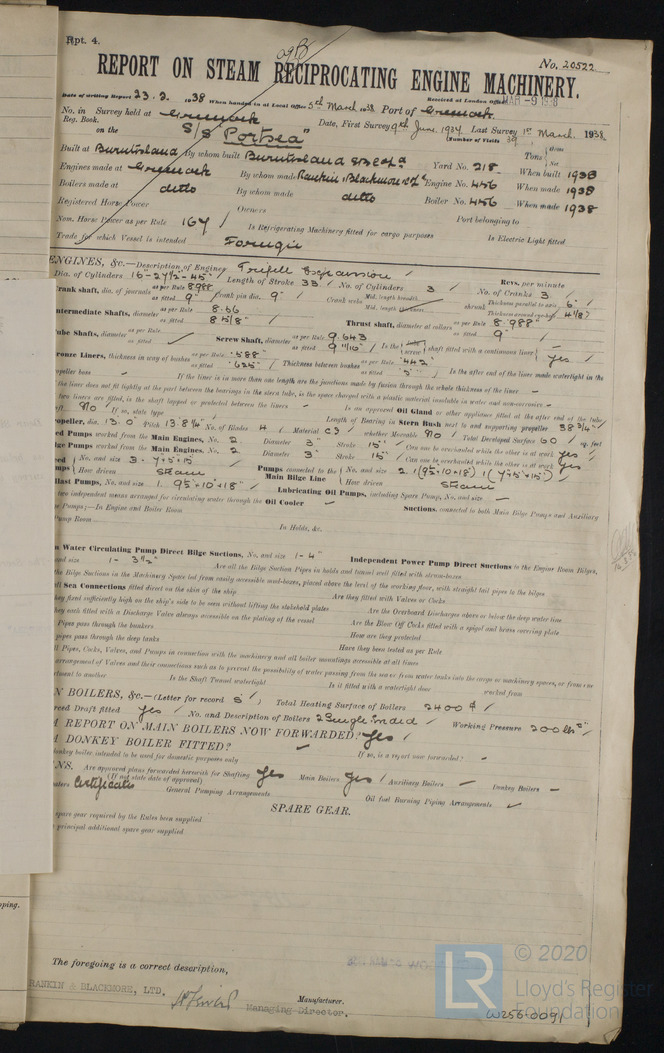 Rpt. 4.
No. 20522
REPORT ON STEAM RECIPROCATING ENGINE MACHINERY.
Date of writing Report 23.2.1938 When handed in at Local Office 5th March 1938 Port of Greenock
Received at London Office MAR -9 1938
No. in Survey held at Greenock Date, First Survey 9th June, 1937 Last Survey 1st March, 1938
Reg. Book.
(Number of Visits 39
on the S/S "Portsea" Tons Gross Net
Built at Burntisland By whom built Burntisland Yard No. 218 When built 1938
Engines made at Greenock By whom made Rankin & Blackmore Ltd Engine No. 456 When made 1938
Boilers made at ditto By whom made ditto Boiler No. 456 When made 1938
Registered Horse Power Owners Port belonging to
Nom. Horse Power as per Rule 164 Is Refrigerating Machinery fitted for cargo purposes Is Electric Light fitted
Trade for which Vessel is intended Foreign
ENGINES, &c.—Description of Engines Triple Expansion Revs. per minute
Dia. of Cylinders 16"-27½"-45" Length of Stroke 33 No. of Cylinders 3 No. of Cranks 3
Crank shaft, dia. of journals as per Rule 8.988 as fitted 9" Crank pin dia. 9" Crank webs Mid. length breadth Mid. length thickness shrunk Thickness parallel to axis 6" Thickness around eye-hole 4 1/8"
Intermediate Shafts, diameter as per Rule 8.56 as fitted 8 5/8" Thrust shaft, diameter at collars as per Rule 8.988" as fitted 9"
Tube Shafts, diameter as per Rule as fitted Screw Shaft, diameter as per Rule 9.643 as fitted 9 11/16" Is the screw shaft fitted with a continuous liner yes
Bronze Liners, thickness in way of bushes as per Rule .588" as fitted .625" Thickness between bushes as per Rule .442" as fitted Is the after end of the liner made watertight in the
propeller boss If the liner is in more than one length are the junctions made by fusion through the whole thickness of the liner
the liner does not fit tightly at the part between the bearings in the stern tube, is the space charged with a plastic material insoluble in water and non-corrosive
two liners are fitted, is the shaft lapped or protected between the liners Is an approved Oil Gland or other appliance fitted at the after end of the tube
shaft No If so, state type Length of Bearing in Stern Bush next to and supporting propeller 38 3/4"
Propeller, dia. 13.0" Pitch No. of Blades 4 Material C3 whether Moveable No Total Developed Surface 60 sq. feet
Feed Pumps worked from the Main Engines, No. 2 Diameter 3" Stroke 15" Can one be overhauled while the other is at work yes
Bilge Pumps worked from the Main Engines, No. 2 Diameter 3" Stroke 15" Can one be overhauled while the other is at work yes
No. and size 3- 7×5×15" Pumps connected to the Main Bilge Line No. and size 2. 1(9½×10×18) 1(7×5×15")
How driven Steam How driven Steam
Ballast Pumps, No. and size 1. 9½×10×18" Lubricating Oil Pumps, including Spare Pump, No. and size
two independent means arranged for circulating water through the Oil Cooler Suctions, connected to both Main Bilge Pumps and Auxiliary
Pumps;—In Engine and Boiler Room
Pump Room In Holds, &c.
Water Circulating Pump Direct Bilge Suctions, No. and size 1-4" Independent Power Pump Direct Suctions to the Engine Room Bilges,
and size 1- 3½" Are all the Bilge Suction Pipes in holds and tunnel well fitted with strum-boxes
the Bilge Suctions in the Machinery Space led from easily accessible mud-boxes, placed above the level of the working floor, with straight tail pipes to the bilges
all Sea Connections fitted direct on the skin of the ship Are they fitted with Valves or Cocks
they fixed sufficiently high on the ship's side to be seen without lifting the stokehold plates Are the Overboard Discharges above or below the deep water line
they each fitted with a Discharge Valve always accessible on the plating of the vessel Are the Blow Off Cocks fitted with a spigot and brass covering plate
Pipes pass through the bunkers How are they protected
pipes pass through the deep tanks Have they been tested as per Rule
all Pipes, Cocks, Valves, and Pumps in connection with the machinery and all boiler mountings accessible at all times
arrangement of Valves and their connections such as to prevent the possibility of water passing from the sea or from water tanks into the cargo or machinery spaces, or from one
compartment to another Is the Shaft Tunnel watertight Is it fitted with a watertight door worked from
MAIN BOILERS, &c.—(Letter for record S) Total Heating Surface of Boilers 2400
Forced Draft fitted yes No. and Description of Boilers 2 Single Ended Working Pressure 200 lbs
A REPORT ON MAIN BOILERS NOW FORWARDED? yes
A DONKEY BOILER FITTED? If so, is a report now forwarded?
donkey boiler intended to be used for domestic purposes only
PLANS. Are approved plans forwarded herewith for Shafting yes Main Boilers yes Auxiliary Boilers Donkey Boilers
(If not state date of approval)
Certificates General Pumping Arrangements Oil fuel Burning Piping Arrangements
SPARE GEAR.
spare gear required by the Rules been supplied
principal additional spare gear supplied
The foregoing is a correct description,
RANKIN & BLACKMORE, LTD.
Manufacturer.
Managing Director.
LR © 2020
Lloyd's Register
Foundation
W256-0091